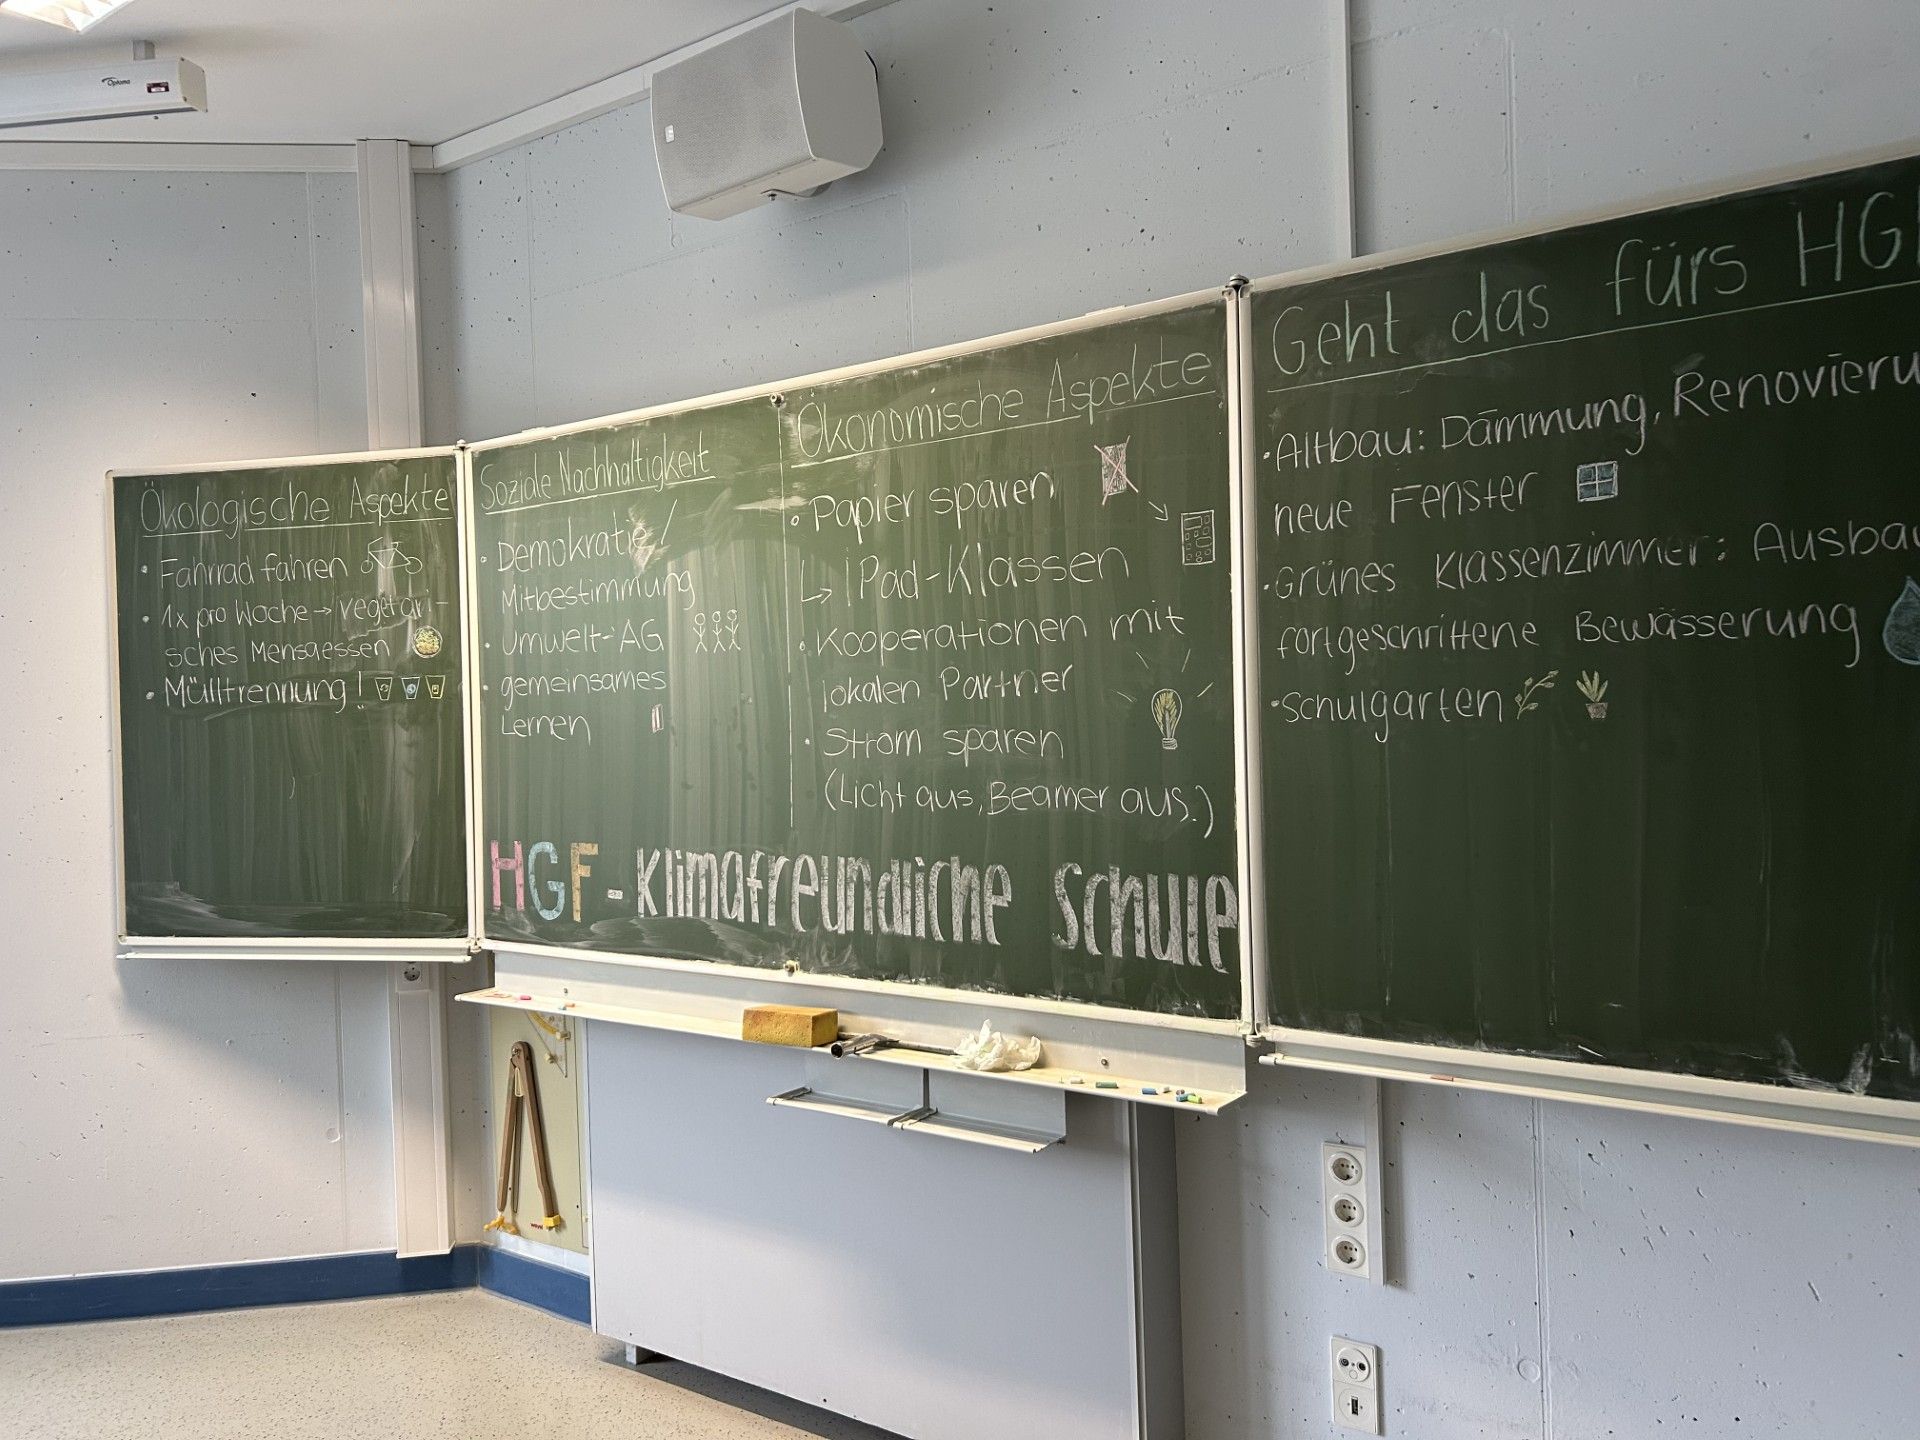 Optoma
Ökologische Aspekte
• Fahrrad fahren
• 1x pro Woche → vegetari-
sches Mensaessen
• Mülltrennung!
Soziale Nachhaltigkeit
• Demokratie/
Mitbestimmung
• Umwelt-AG
• gemeinsames
Lernen
Ökonomische Aspekte
• Papier sparen
↳ iPad-Klassen
• Kooperationen mit
lokalen Partner
• Strom sparen
(Licht aus, Beamer aus.)
HGF - Klimafreundliche Schule
Geht das fürs HG
• Altbau: Dämmung, Renovieru
neue Fenster
• Grünes Klassenzimmer: Ausbau
fortgeschrittene Bewässerung
• Schulgarten